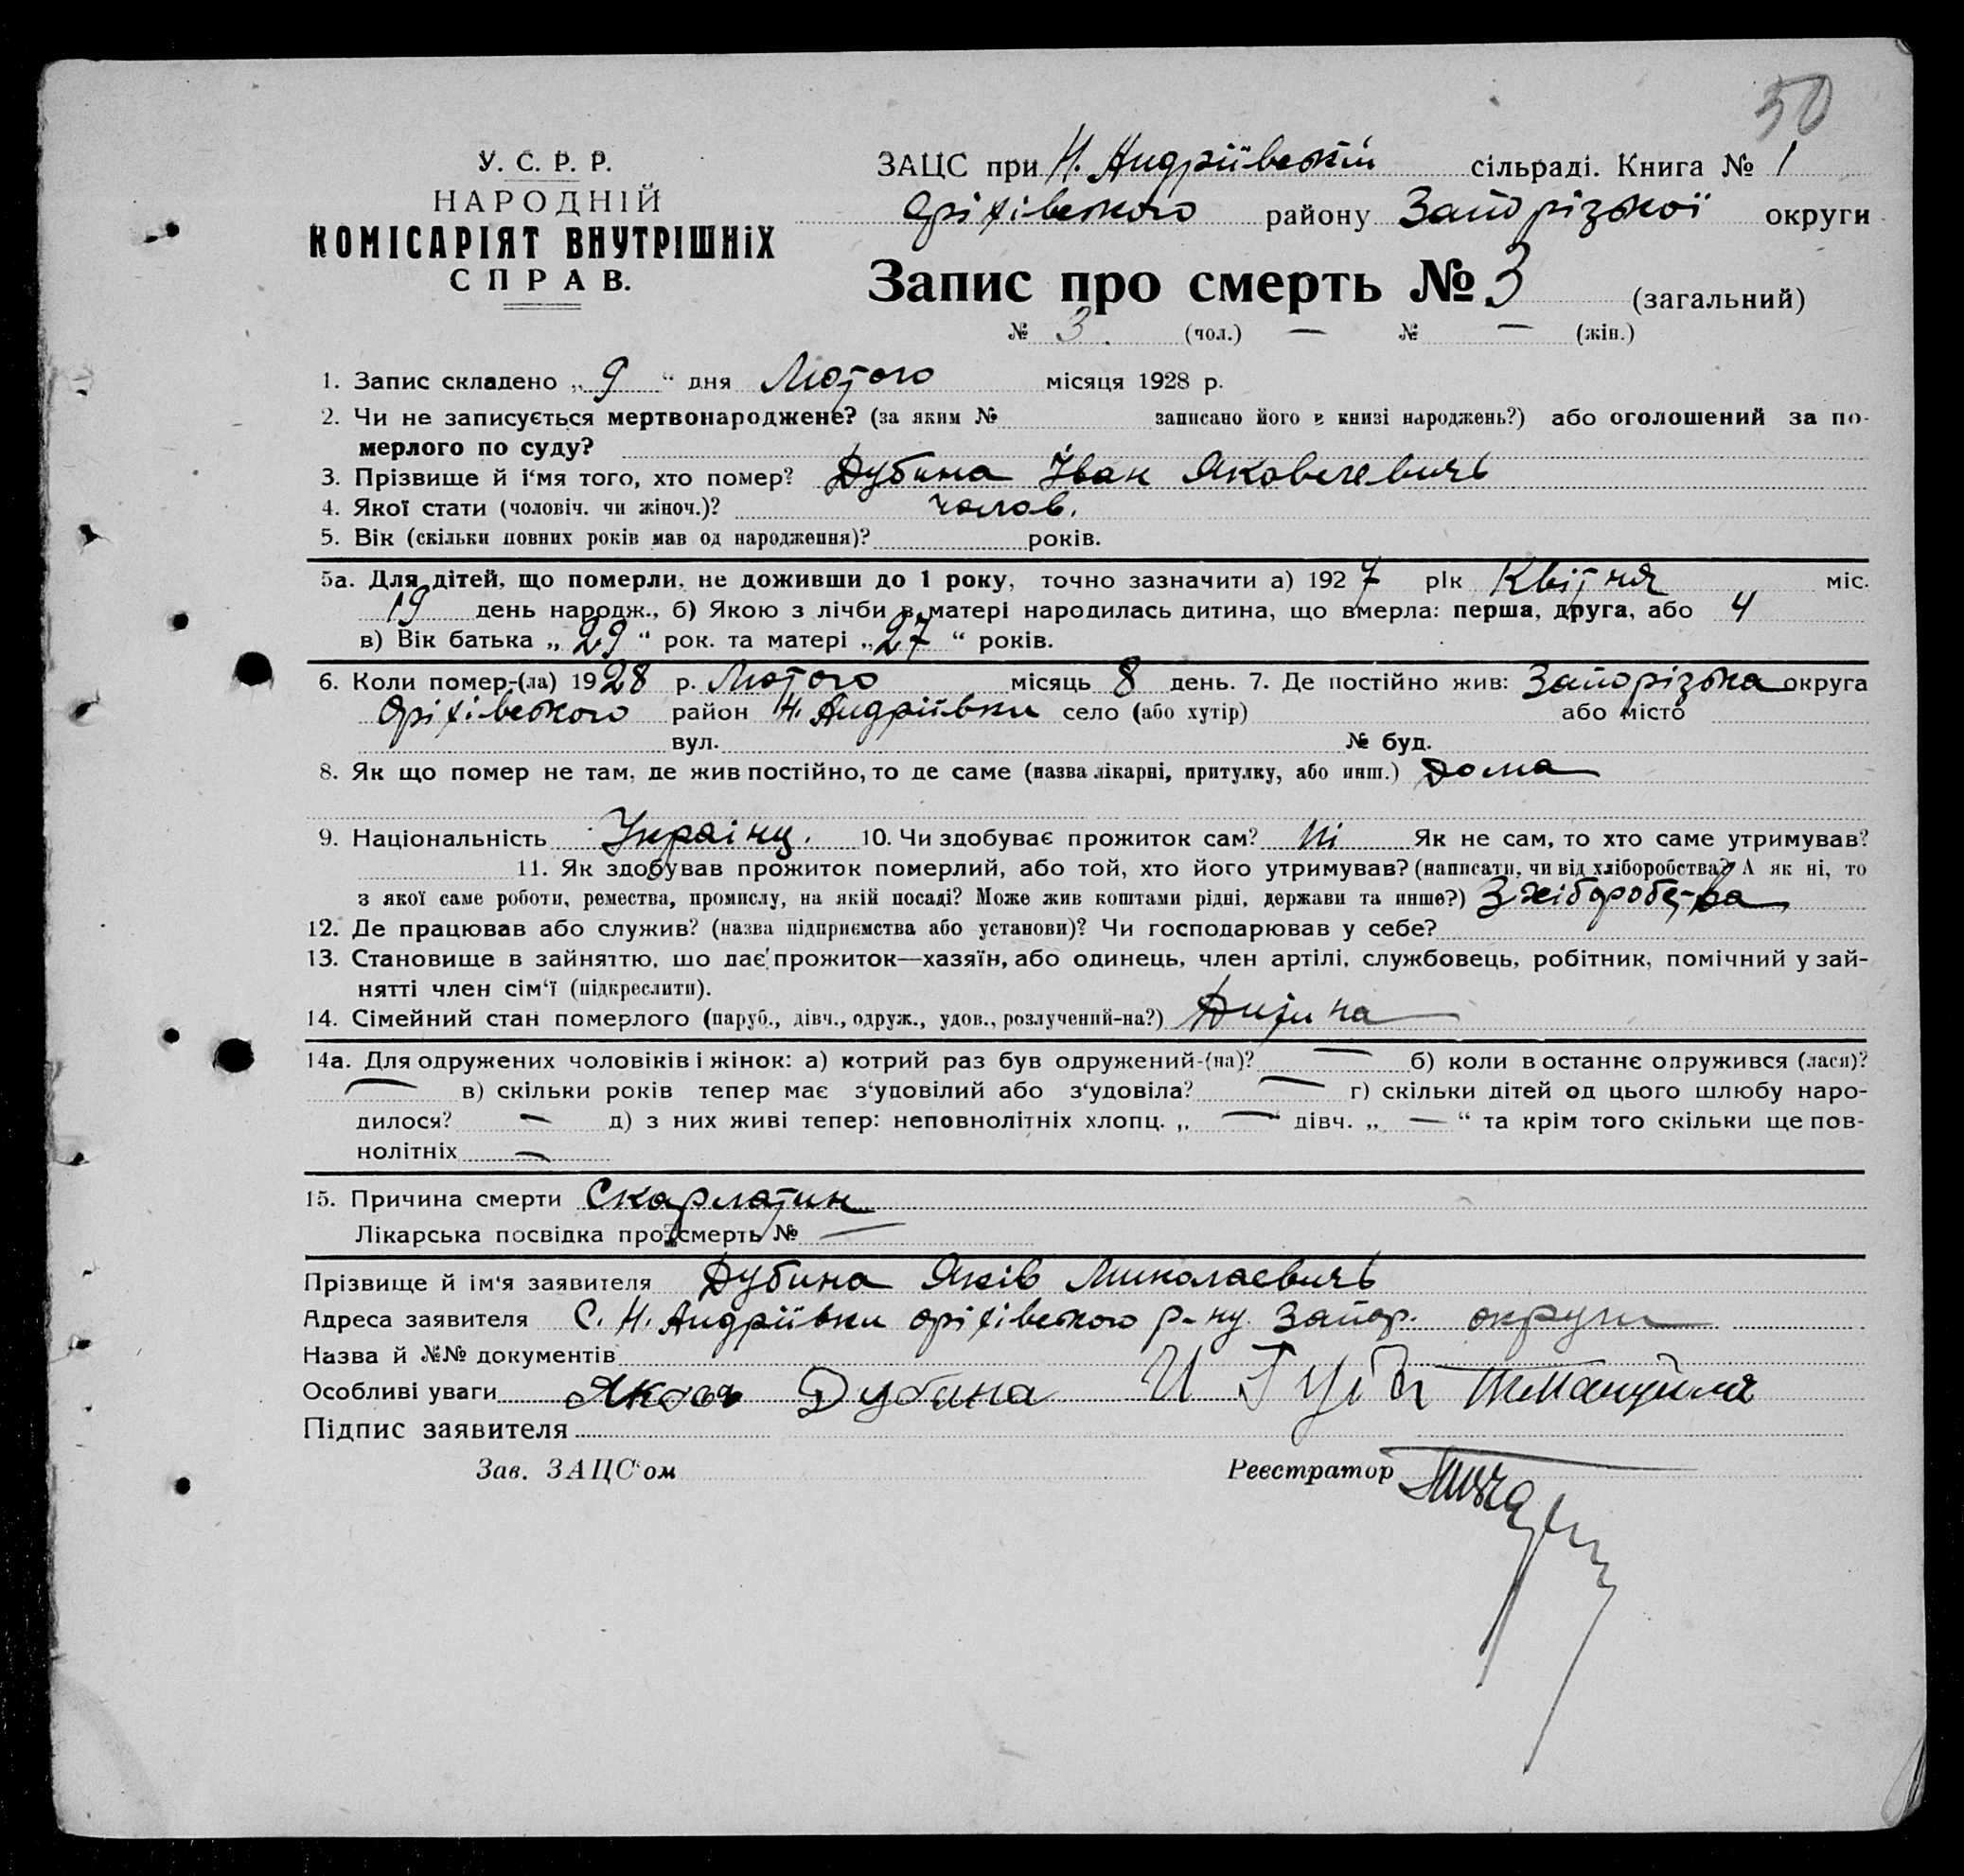 50
У. С. Р. Р.
НАРОДНІЙ
КОМІСАРІЯТ ВНУТРІШНІХ
СПРАВ.
ЗАЦС при Н. Андріївській сільраді. Книга № 1
Оріхівського району Запорізької округи
Запис про смерть № 3 (загальний)
№ 3. (чол.) — № — (жін.)
1. Запис складено „ 9 “ дня Лютого місяця 1928 р.
2. Чи не записується мертвонароджене? (за яким № записано його в книзі народжень?) або оголошений за по-
мерлого по суду?
3. Прізвище й і'мя того, хто помер? Дубина Іван Яковлевичь
4. Якої стати (чоловіч. чи жіноч.)? чолов.
5. Вік (скільки повних років мав од народження)? років.
5а. Для дітей, що померли, не доживши до 1 року, точно зазначити а) 1927 рік Квітня міс.
19 день народж., б) Якою з лічби в матері народилась дитина, що вмерла: перша, друга, або 4
в) Вік батька „ 29 “ рок. та матері „ 27 “ років.
6. Коли помер-(ла) 1928 р. Лютого місяць 8 день. 7. Де постійно жив: Запорізька округа
Оріхівського район Н. Андріївки село (або хутір) або місто
вул. № буд.
8. Як що помер не там, де жив постійно, то де саме (назва лікарні, притулку, або инш.) Дома
9. Національність Украінц. 10. Чи здобуває прожиток сам? Ні Як не сам, то хто саме утримував?
11. Як здобував прожиток померлий, або той, хто його утримував? (написати, чи від хліборобства? А як ні, то
з якої саме роботи, ремества, промислу, на якій посаді? Може жив коштами рідні, держави та инше?) З хліборобс-ва
12. Де працював або служив? (назва підприємства або установи)? Чи господарював у себе?
13. Становище в зайняттю, що дає прожиток—хазяїн, або одинець, член артілі, службовець, робітник, помічний у зай-
нятті член сім‘ї (підкреслити).
14. Сімейний стан померлого (паруб., дівч., одруж., удов., розлучений-на?) Дитина
14а. Для одружених чоловіків і жінок: а) котрий раз був одружений-(на)? — б) коли в останнє одружився (лася)?
— в) скільки років тепер має з‘удовілий або з‘удовіла? — г) скільки дітей од цього шлюбу наро-
дилося? — д) з них живі тепер: неповнолітніх хлопц. „ — “ дівч. „ — “ та крім того скільки ще пов-
нолітніх —
15. Причина смерти Скарлатин
Лікарська посвідка про смерть № —
Прізвище й ім‘я заявителя Дубина Яків Миколаевичь
Адреса заявителя С. Н. Андріївки Оріхівського р-ну. Запор. округи
Назва й №№ документів
Особливі уваги Яков Дубина И Губа
Підпис заявителя
Зав. ЗАЦС‘ом Реєстратор